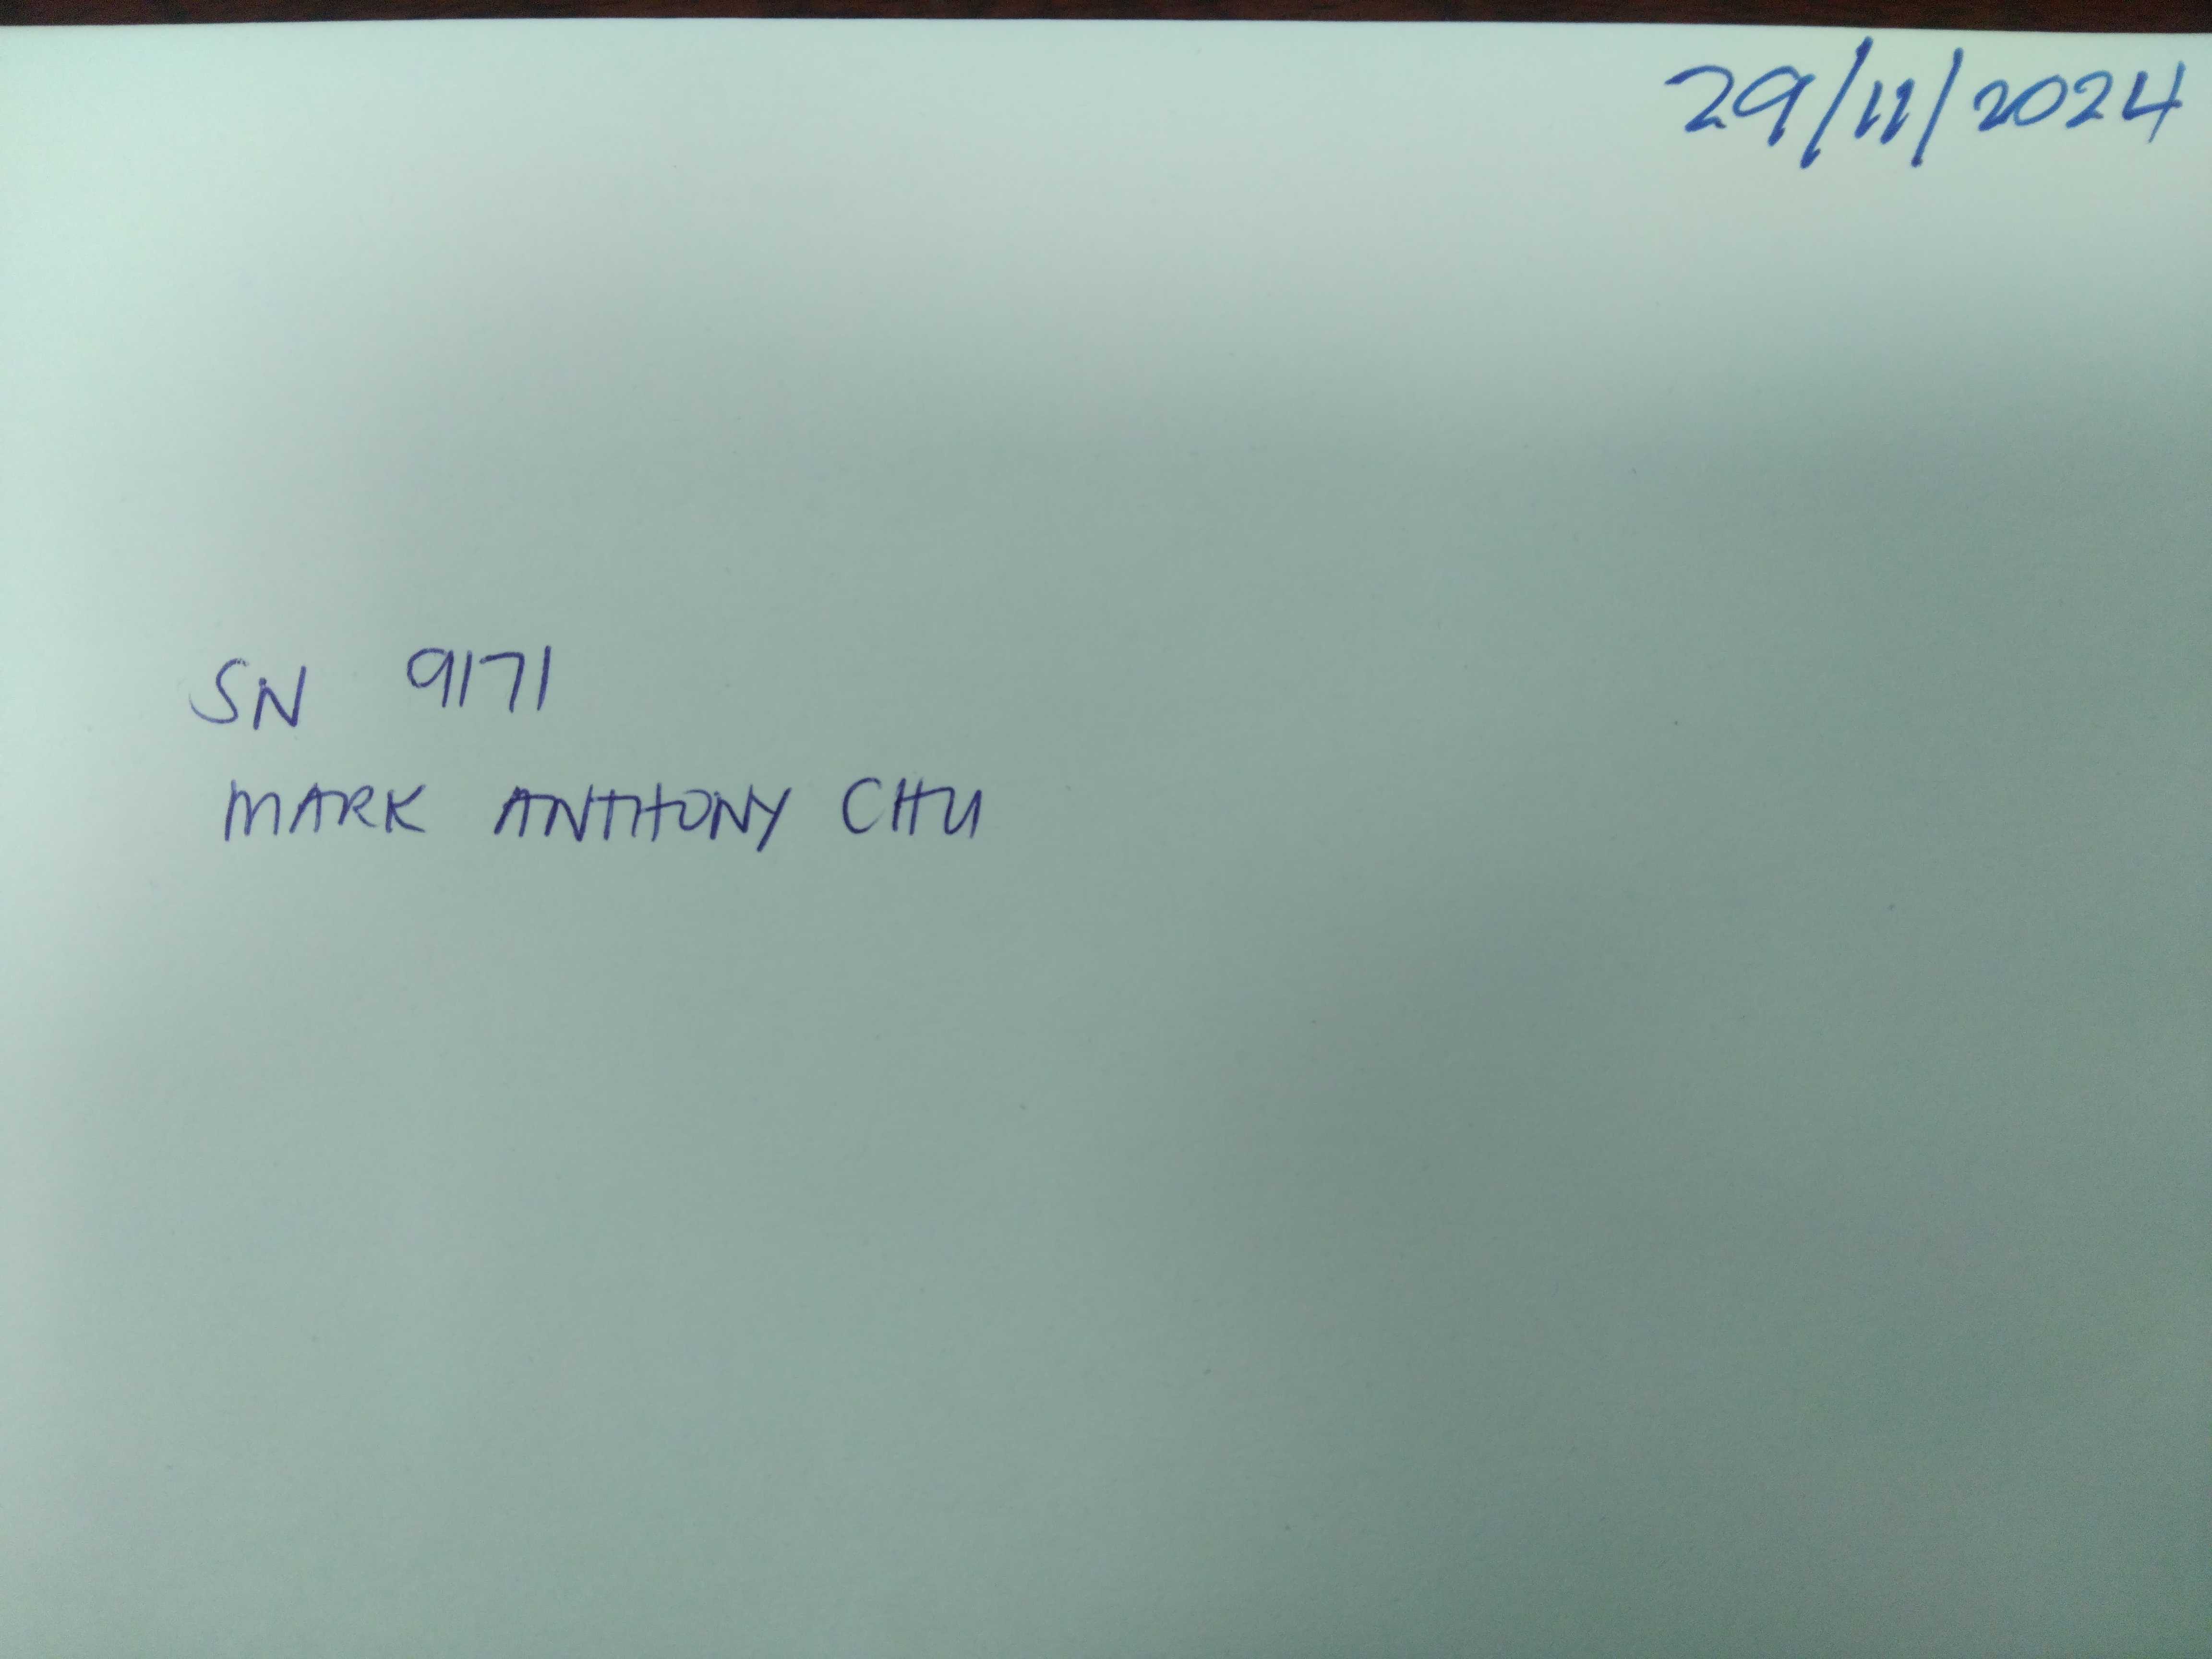 29/11/2024
SN 9171
MARK ANTHONY CHU